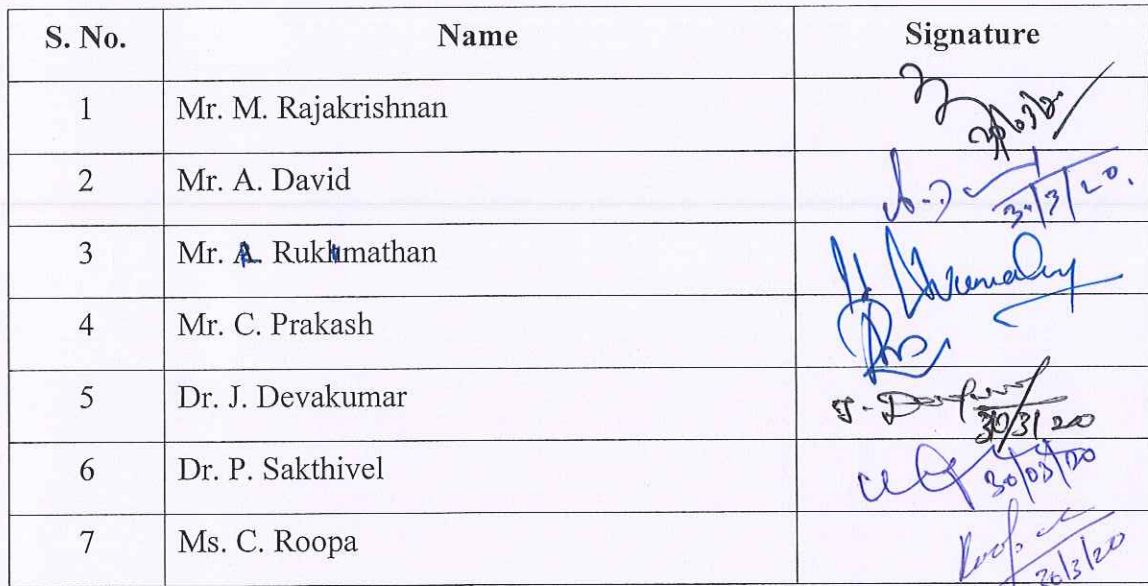 S. No. Name Signature
1 Mr. M. Rajakrishnan
2 Mr. A. David 30/3/20.
3 Mr. Rukhmathan
4 Mr. C. Prakash
5 Dr. J. Devakumar J. 30/3/20
6 Dr. P. Sakthivel 30/03/20
7 Ms. C. Roopa 30/3/20